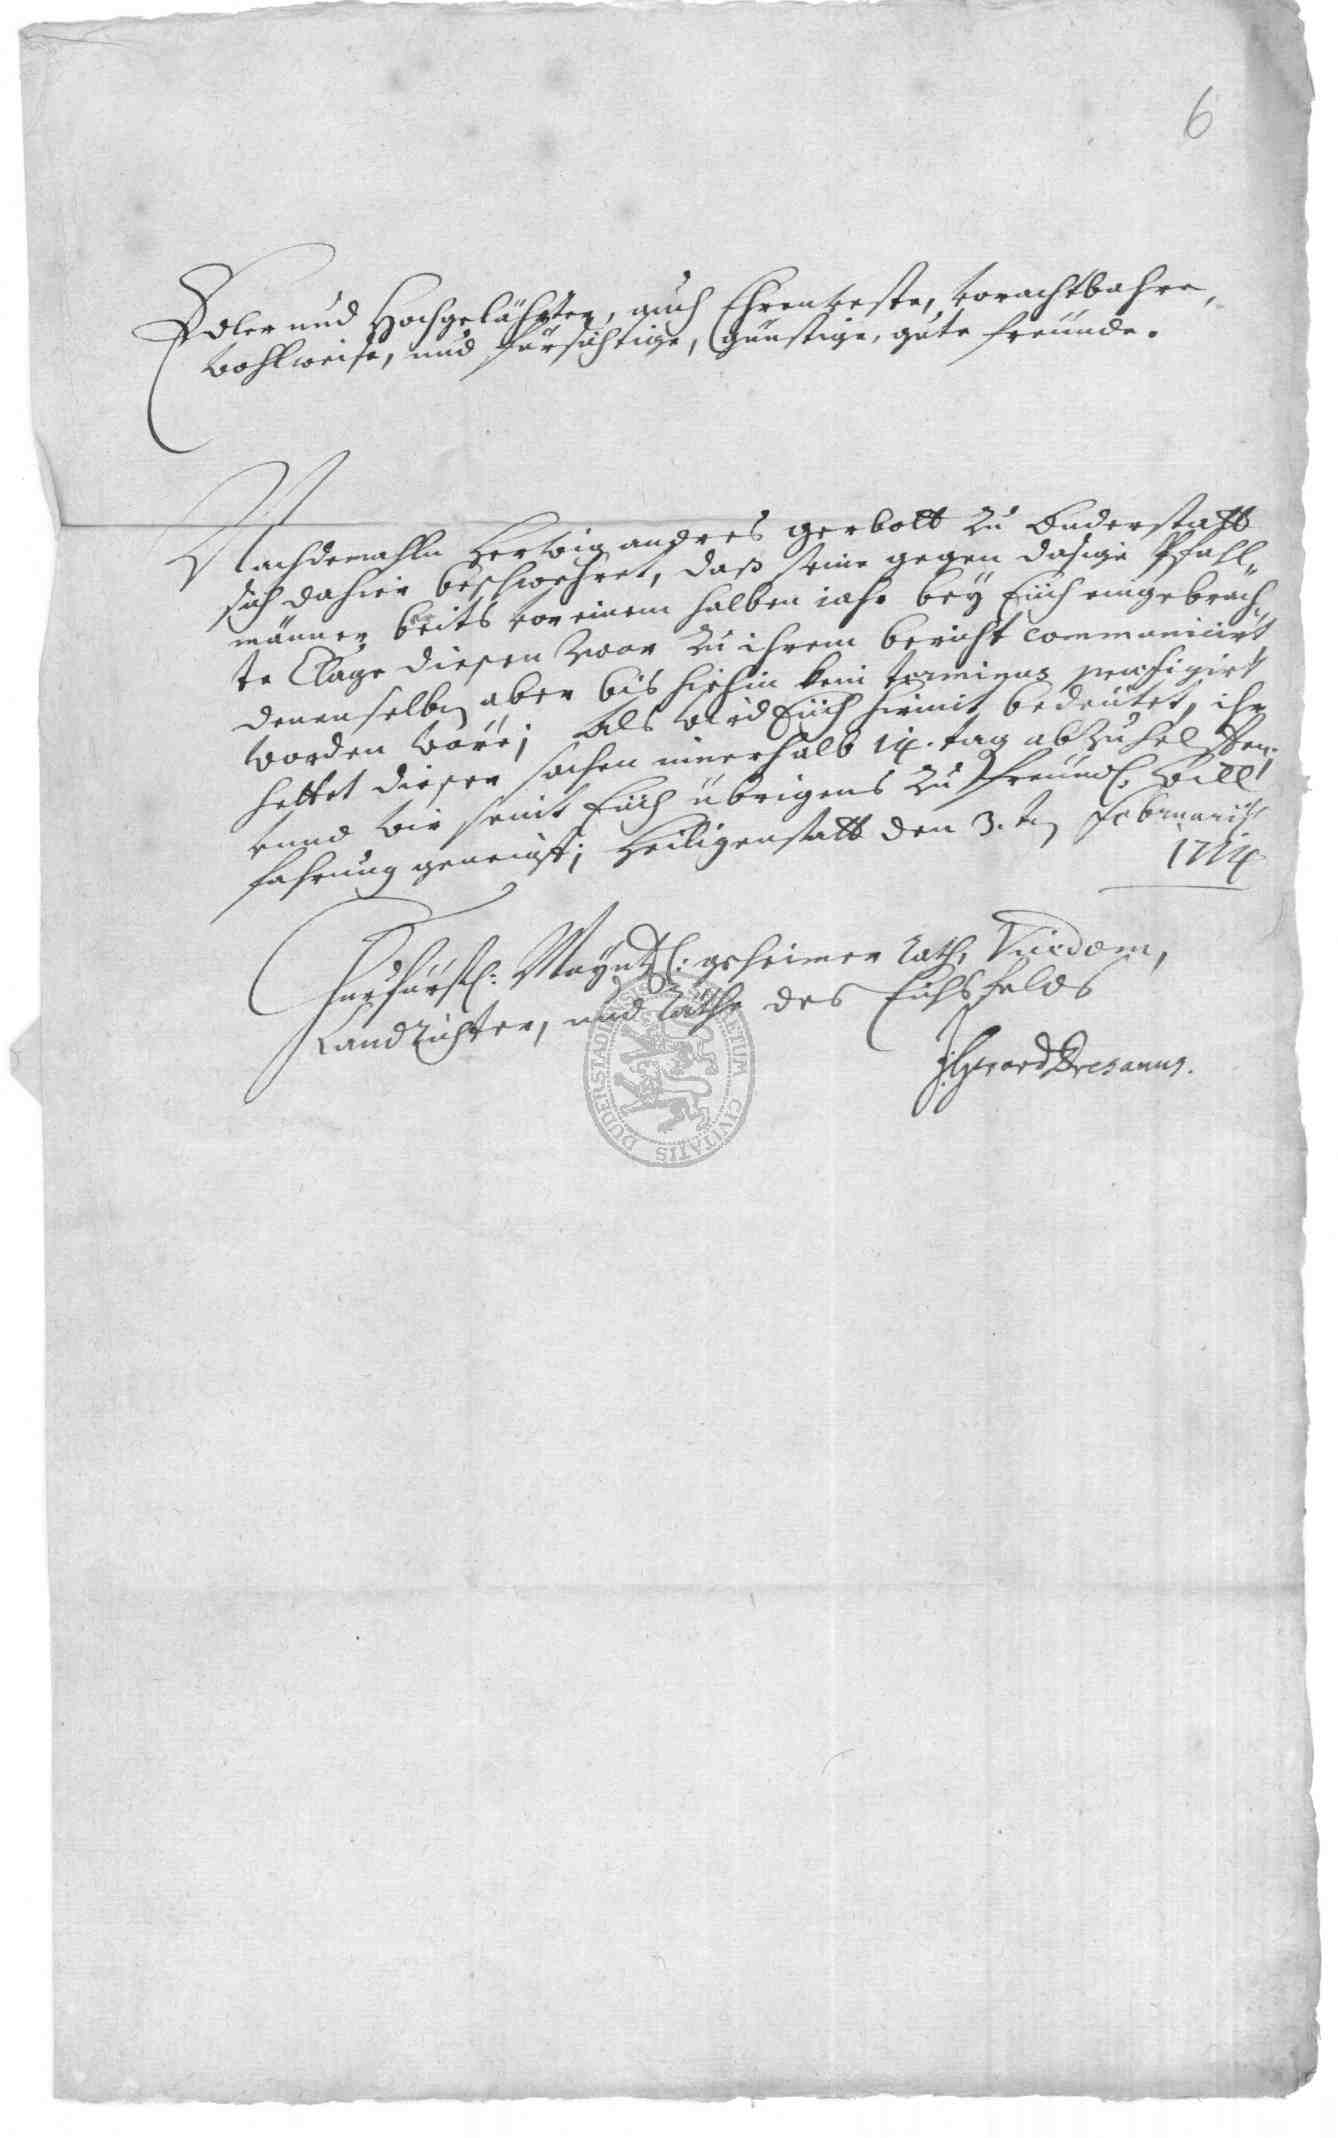 6
Edler und Hochgelährter, auch Ehrenveste, vorachtbahre,
wohlweise, und fürsichtige, günstige, gute freünde.
Nachdemahln Herwig andres gerbott zu Duderstatt
sich dahier beschwehret, daß seine gegen dasige Pfahl„
männer bereits vor einem halben iahr bey Eüch eingebrach„
te Clage diesen zwar zu ihrem bericht communicirt
denenselben aber bis hiehin kein terminus praefigirt
worden wäre; Als wird Eüch hiermit bedeütet, ihr
hettet dieser sachen innerhalb 14. tag abzuhelffen,
unnd wir seint Eüch übrigens zu freundl. Will
fahrung geneigt; Heiligenstatt den 3. ten Februarii
1714
Churfürstl: Mayntzl: geheimer Rath, Vicedom,
Landrichter, und Räthe des Eichsfelds
J Gerard
DUDERSTADIENSIS CIVITATIS